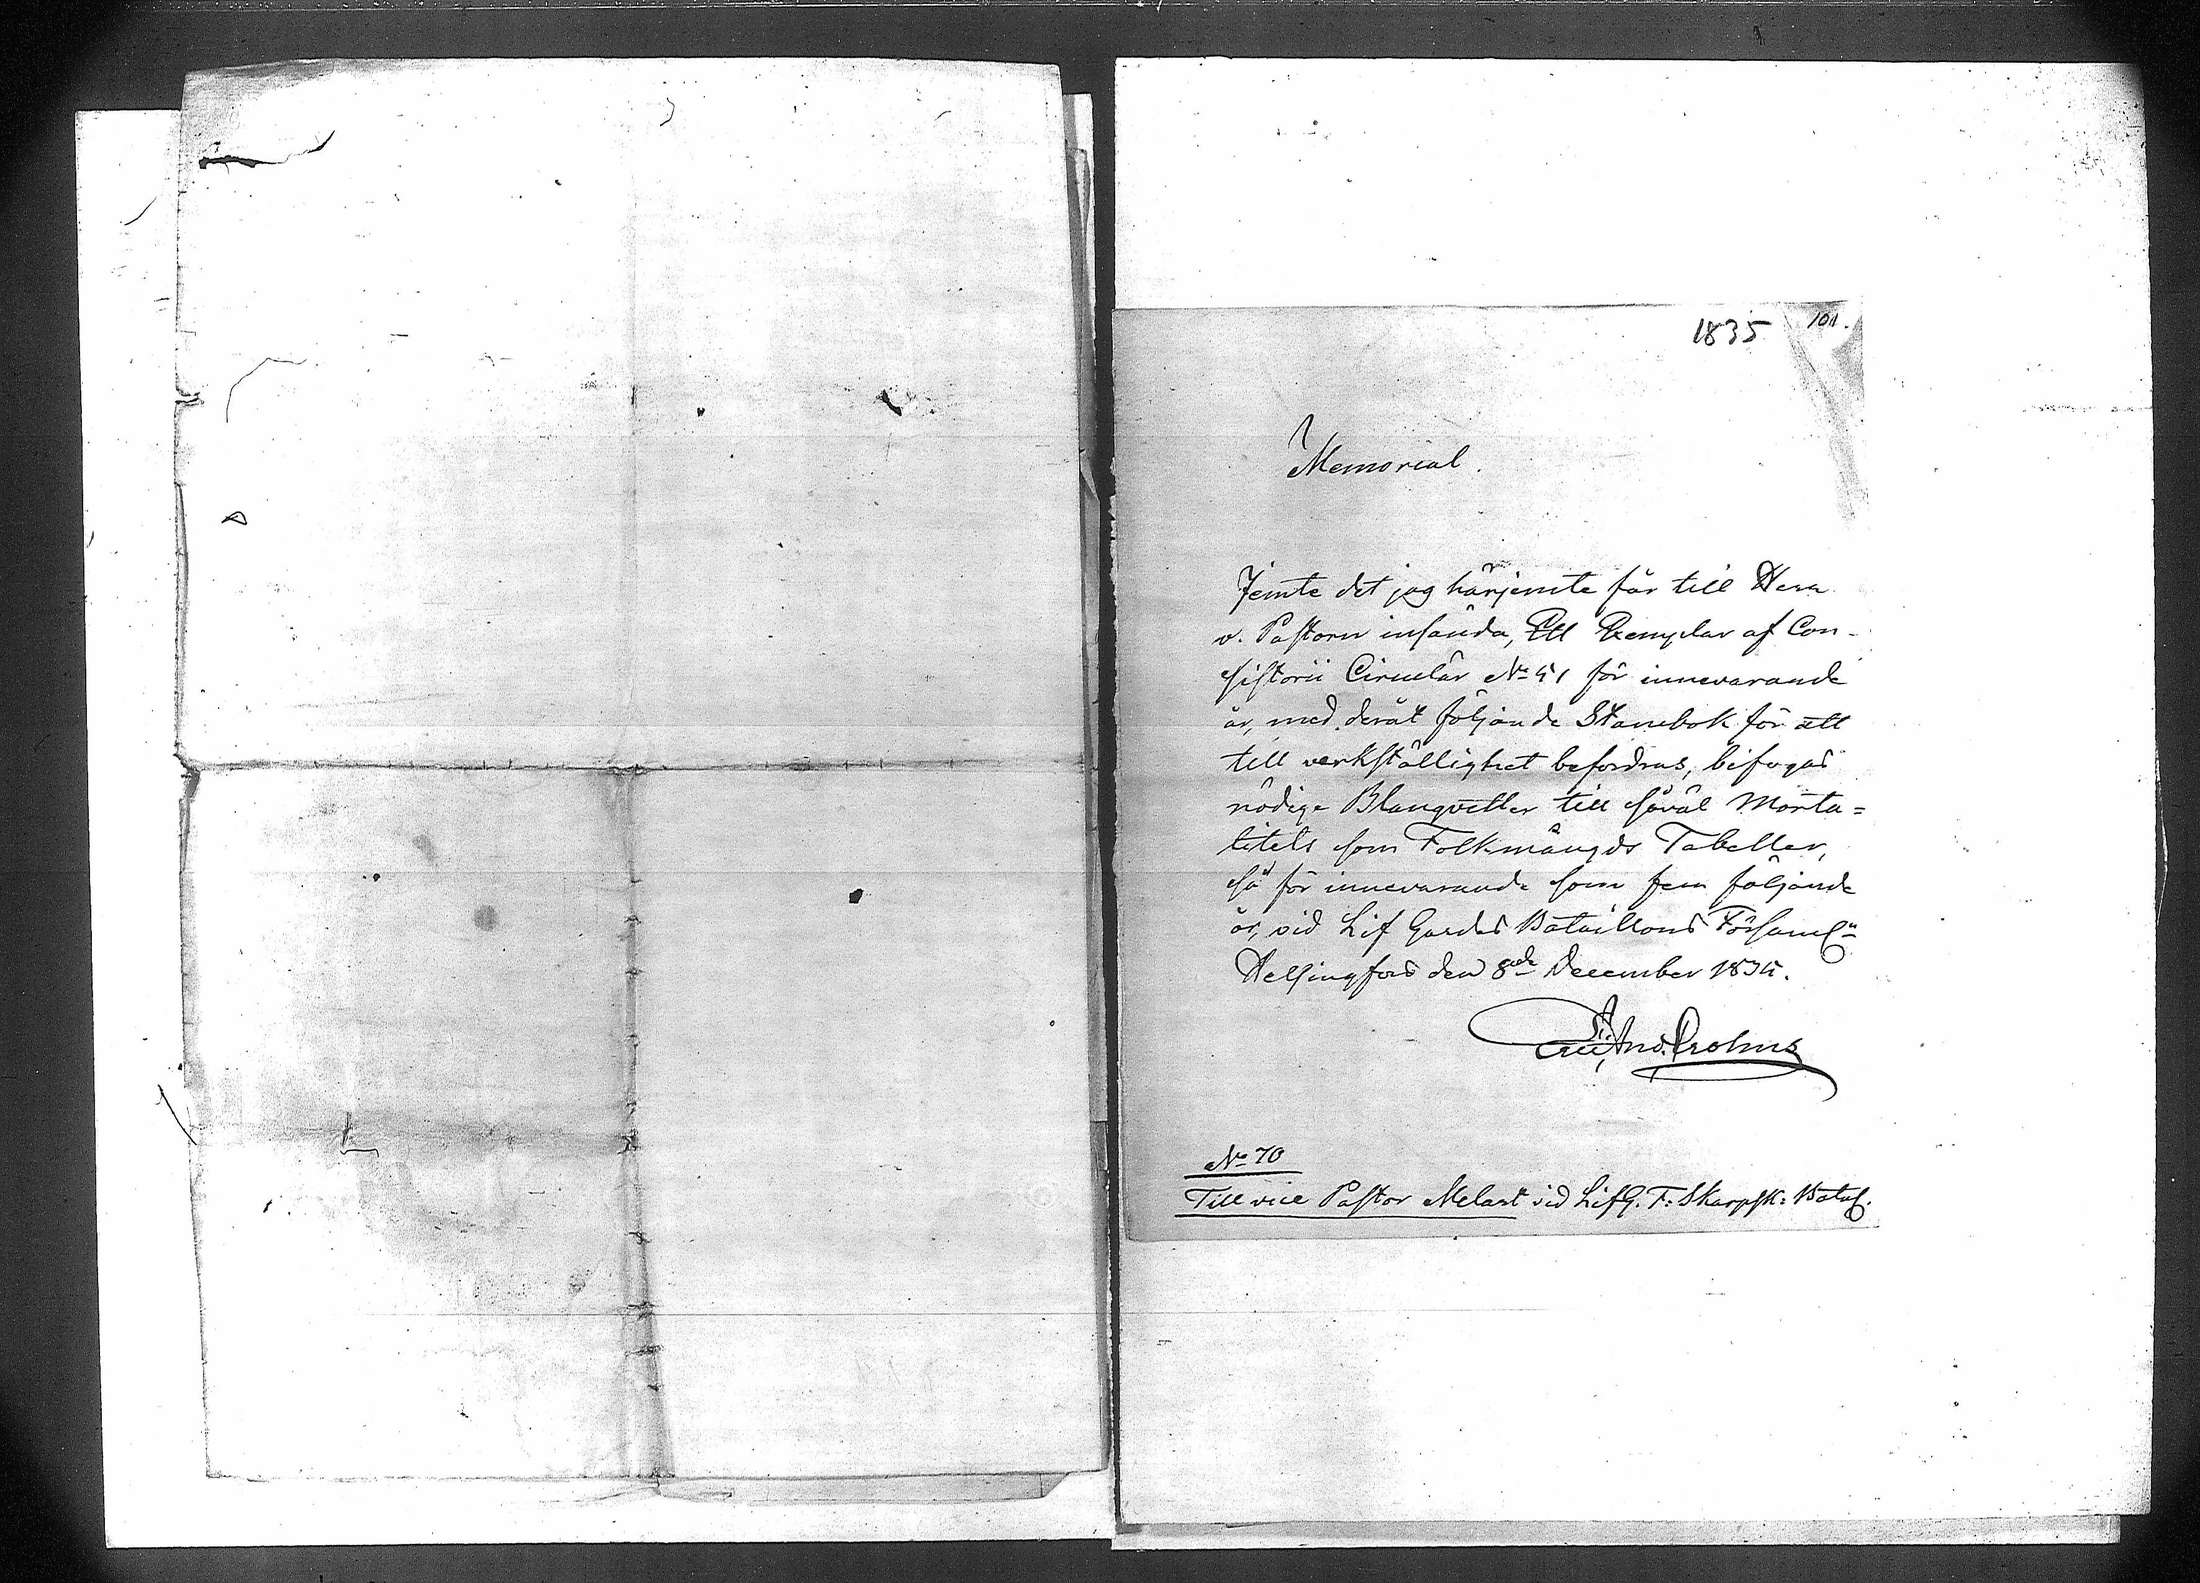 1835 101.
Memorial.
Jemte det jag härjemte får till Herr
v. Pastorn insända, Ett Exemplar af Con-
sistorii Circulär No 51 för innevarande
år, med deråt följande Stambok för att
till verkställighet befordras, bifogas
nödige Blanqvetter till såväl Morta=
litets som Folkmängds Tabeller,
så för innevarande som fem följande
år, vid Lif Gardes Bataillons Församln
Helsingfors den 8de December 1835.
And. Crohns
No 70
Till vice Pastor Melart vid Lif G. F: Skarpsk: Batal.